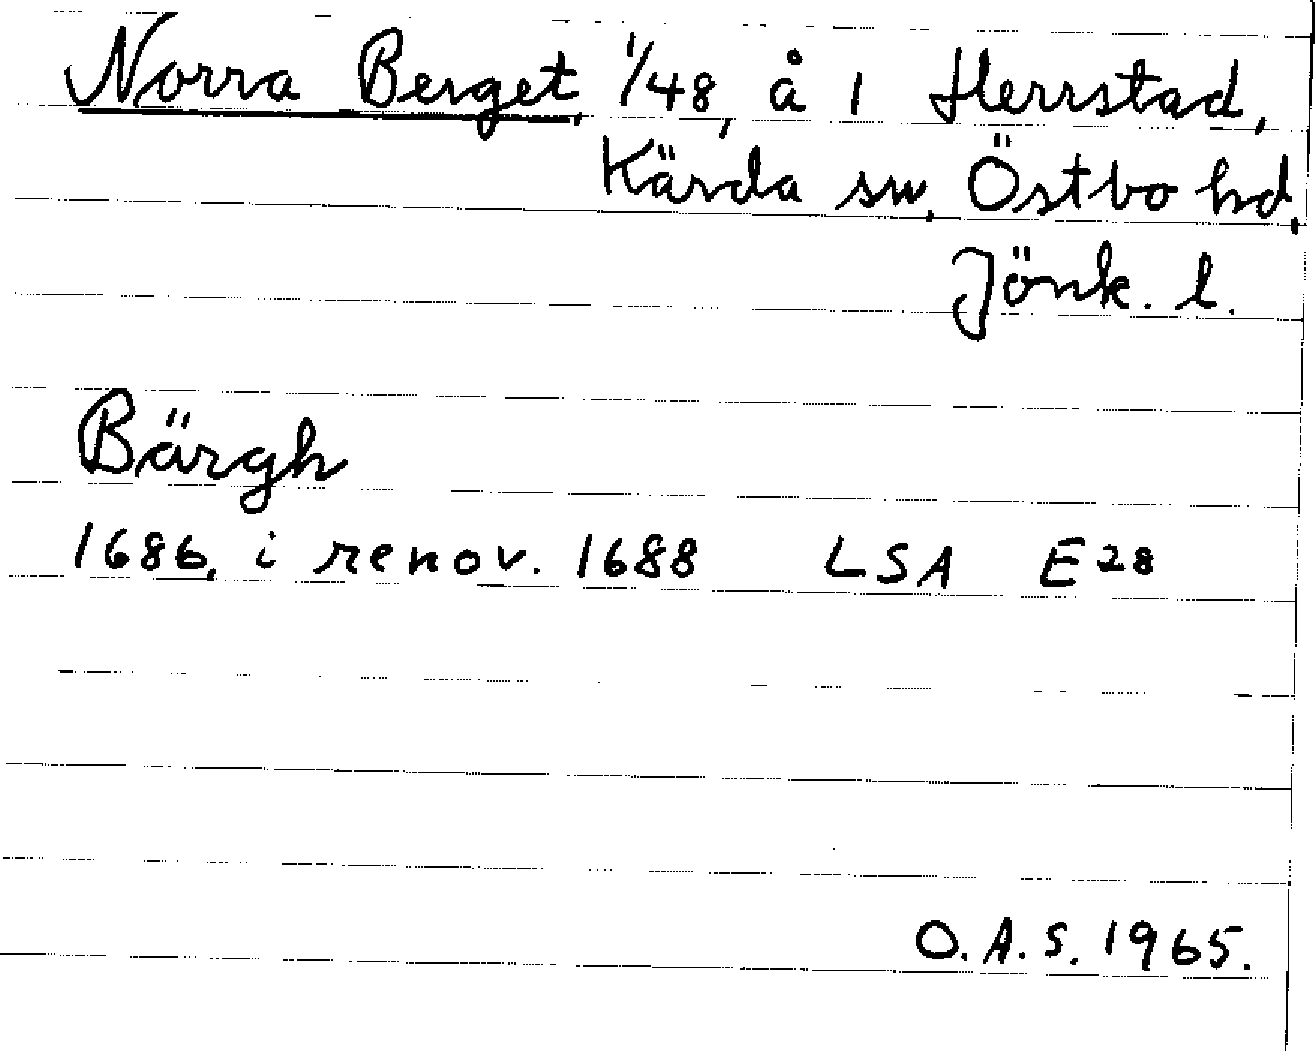 Norra Berget, 1/48, å 1 Herrstad,
Kärda sn, Östbo hd,
Jönk. l.
Bärgh
1686, i renov. 1688 LSA E28
O.A.S. 1965.